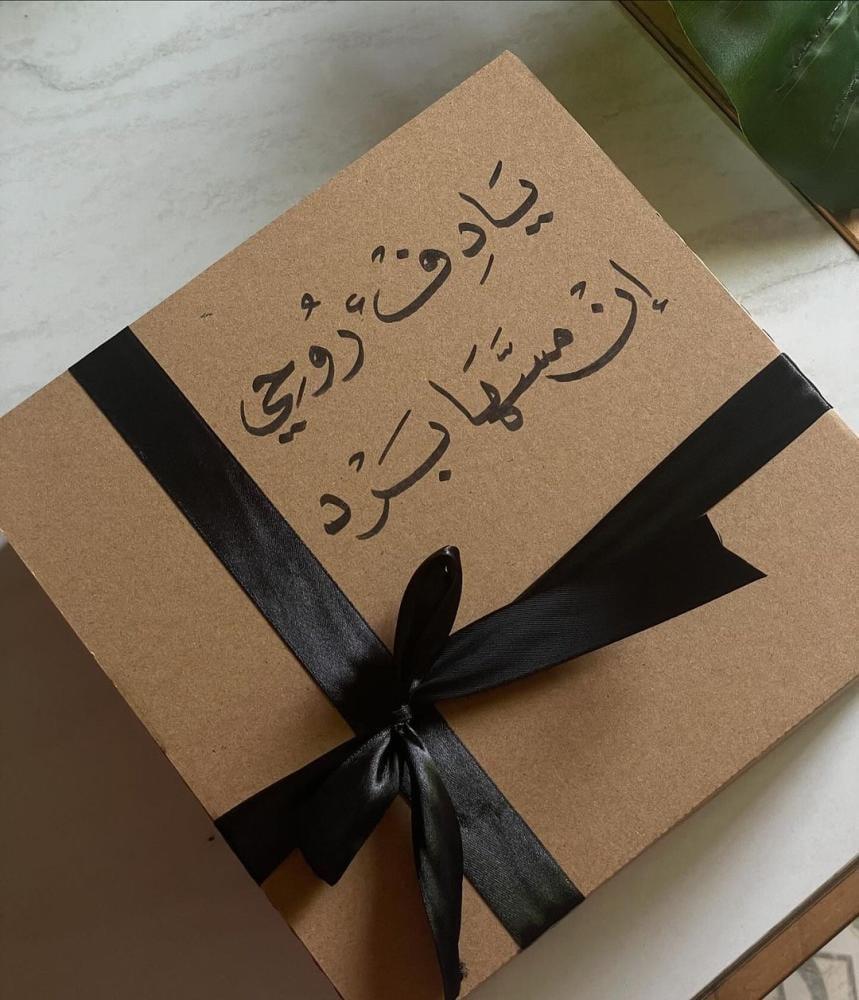 يَا دِفْء رُوُحِي
إِنْ مسَّهَا بَرْد